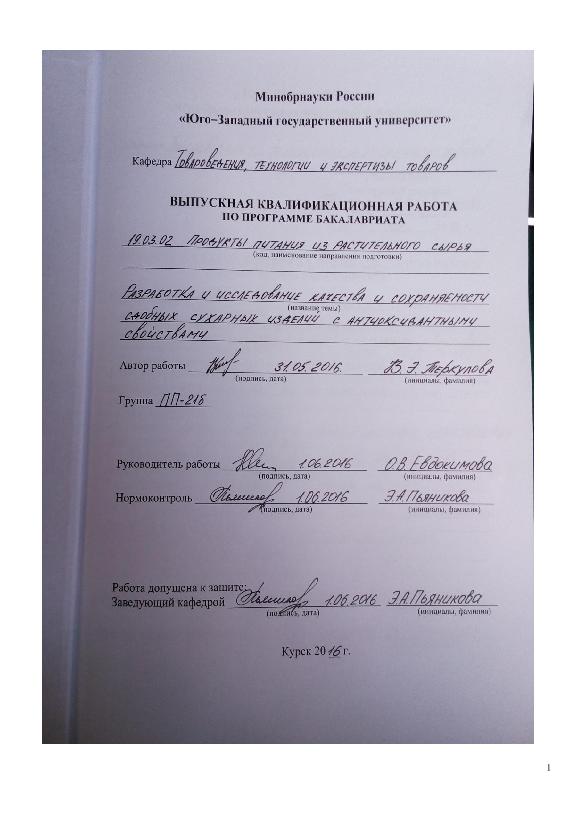 Минобрнауки России
«Юго–Западный государственный университет»
Кафедра Товароведения, технологии и экспертизы товаров
ВЫПУСКНАЯ КВАЛИФИКАЦИОННАЯ РАБОТА
ПО ПРОГРАММЕ БАКАЛАВРИАТА
19.03.02 Продукты питания из растительного сырья
(код, наименование направления подготовки)
Разработка и исследование качества и сохраняемости
(название темы)
сдобных сухарных изделий с антиоксидантными
свойствами
Автор работы 31.05.2016. В.Э. Теркулова
(подпись, дата) (инициалы, фамилия)
Группа ПП-21б
Руководитель работы 1.06.2016 О.В. Евдокимова
(подпись, дата) (инициалы, фамилия)
Нормоконтроль 1.06.2016 Э.А. Пьяникова
(подпись, дата) (инициалы, фамилия)
Работа допущена к защите:
Заведующий кафедрой 1.06.2016 Э.А. Пьяникова
(подпись, дата) (инициалы, фамилия)
Курск 2016 г.
1